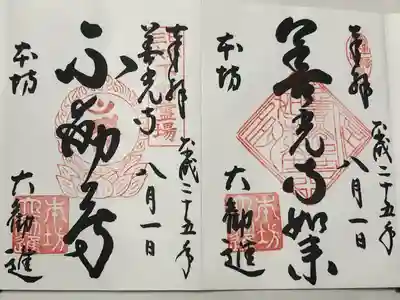 奉拝
平成二十五年
八月一日
善光寺如来
本坊
大勧進
奉拝
平成二十五年
善光寺
八月一日
不動尊
本坊
大勧進